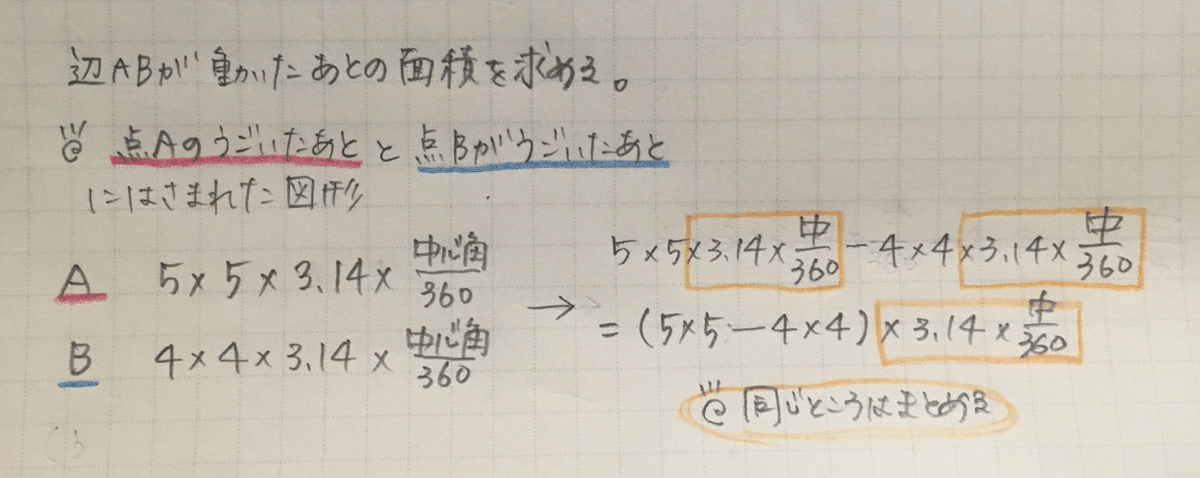 辺ABが動いたあとの面積を求める。
点Aのうごいたあとと点Bがうごいたあと
にはさまれた図形
A 5×5×3.14×中心角/360
B 4×4×3.14×中心角/360
→
5×5×3.14×中/360-4×4×3.14×中/360
=(5×5-4×4)×3.14×中/360
同じところはまとめる